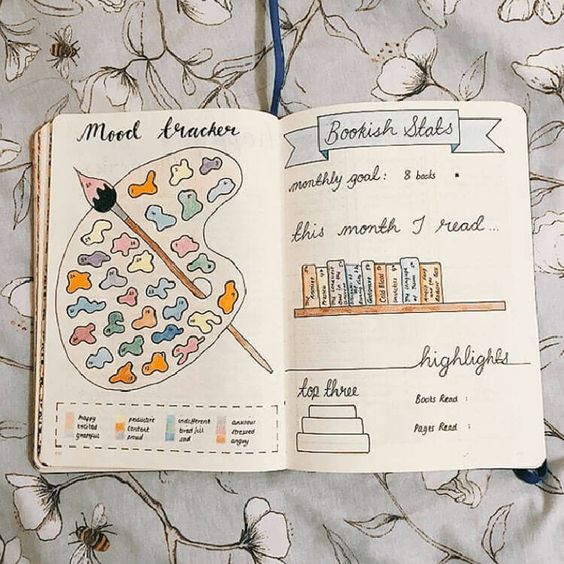 Mood tracker
happy
excited
grateful
productive
content
proud
indifferent
bored/ill
sad
anxious
stressed
angry
Bookish Stats
monthly goal: 8 books
this month I read...
Cold Blood
highlights
top three
Books Read :
Pages Read :